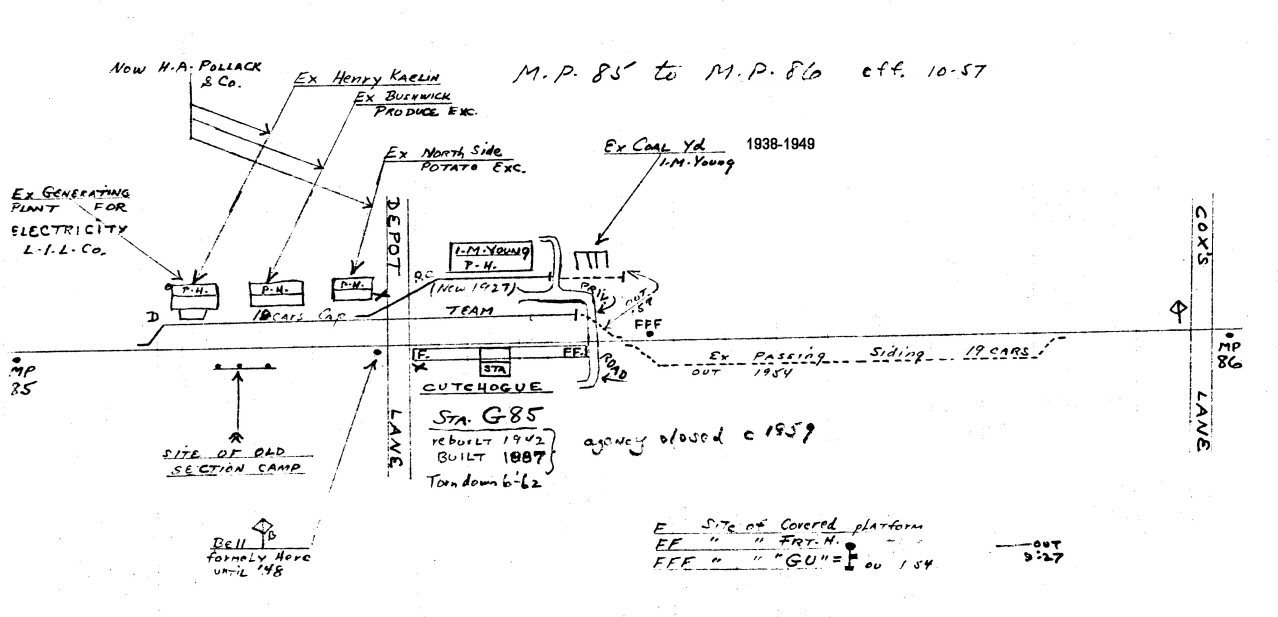 M.P. 85 to M.P. 86 eff. 10-57
Now H.A. POLLACK
& Co.
Ex Henry KAELIN
Ex BUSHWICK
PRODUCE EXC.
Ex NORTH Side
POTATO EXC.
Ex COAL Yd 1938-1949
I.M. Young
Ex GENERATING
PLANT FOR
ELECTRICITY
L.I.L. Co.
DEPOT
LANE
COX'S
LANE
I.M. YOUNG
P-H.
P-H.
P-H.
P-H.
(New 1927)
PRIV.
ROAD
OUT
D
CARS Cap
TEAM
FFF
F.
FF.
STA
Ex PASSING Siding 19 CARS
OUT 1954
MP
85
MP
86
CUTCHOGUE
STA. G85
rebuilt 1942
BUILT 1887
Torn down 6-62
agency closed c 1959
SITE OF OLD
SECTION CAMP
B
Bell
formely Here
until '48
F Site of Covered platform
FF " " FRT-H.
FFF " " "GU" =
OUT